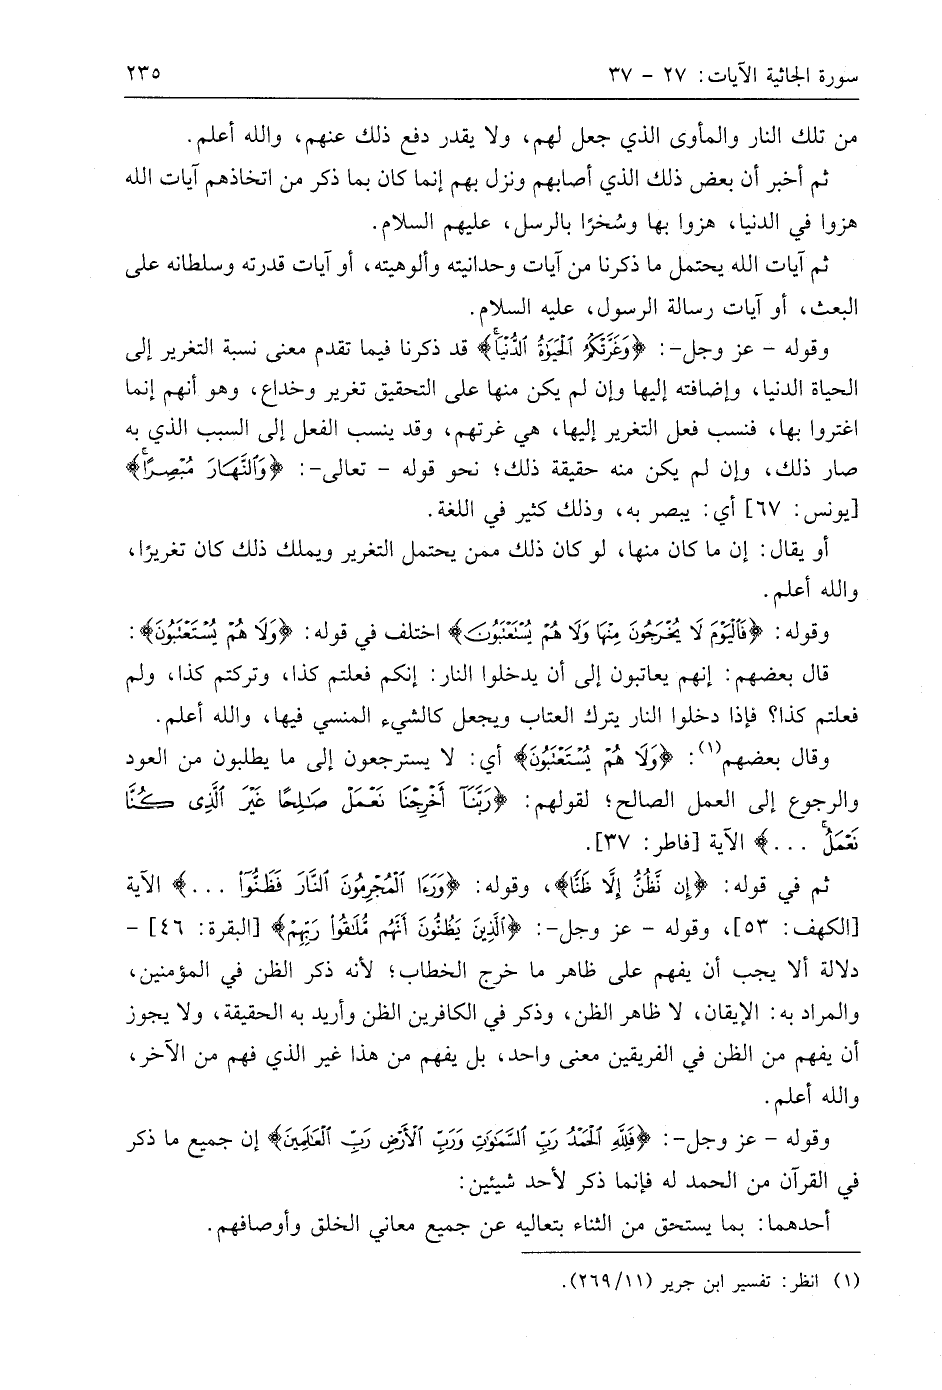 سورة الجاثية الآيات: ٢٧ - ٣٧ ٢٣٥
من تلك النار والمأوى الذي جعل لهم، ولا يقدر دفع ذلك عنهم، والله أعلم.
ثم أخبر أن بعض ذلك الذي أصابهم ونزل بهم إنما كان بما ذكر من اتخاذهم آيات الله
هزوا في الدنيا، هزوا بها وسُخرًا بالرسل، عليهم السلام.
ثم آيات الله يحتمل ما ذكرنا من آيات وحدانيته وألوهيته، أو آيات قدرته وسلطانه على
البعث، أو آيات رسالة الرسول، عليه السلام.
وقوله - عز وجل-: ﴿وَغَرَّتْكُمُ ٱلْحَيَوٰةُ ٱلدُّنْيَاۚ﴾ قد ذكرنا فيما تقدم معنى نسبة التغرير إلى
الحياة الدنيا، وإضافته إليها وإن لم يكن منها على التحقيق تغرير وخداع، وهو أنهم إنما
اغتروا بها، فنسب فعل التغرير إليها، هي غرتهم، وقد ينسب الفعل إلى السبب الذي به
صار ذلك، وإن لم يكن منه حقيقة ذلك؛ نحو قوله - تعالى-: ﴿وَٱلنَّهَارَ مُبْصِرًاۚ﴾
[يونس: ٦٧] أي: يبصر به، وذلك كثير في اللغة.
أو يقال: إن ما كان منها، لو كان ذلك ممن يحتمل التغرير ويملك ذلك كان تغريرًا،
والله أعلم.
وقوله: ﴿فَٱلْيَوْمَ لَا يُخْرَجُونَ مِنْهَا وَلَا هُمْ يُسْتَعْتَبُونَ﴾ اختلف في قوله: ﴿وَلَا هُمْ يُسْتَعْتَبُونَ﴾:
قال بعضهم: إنهم يعاتبون إلى أن يدخلوا النار: إنكم فعلتم كذا، وتركتم كذا، ولم
فعلتم كذا؟ فإذا دخلوا النار يترك العتاب ويجعل كالشيء المنسي فيها، والله أعلم.
وقال بعضهم(١): ﴿وَلَا هُمْ يُسْتَعْتَبُونَ﴾ أي: لا يسترجعون إلى ما يطلبون من العود
والرجوع إلى العمل الصالح؛ لقولهم: ﴿رَبَّنَآ أَخْرِجْنَا نَعْمَلْ صَٰلِحًا غَيْرَ ٱلَّذِى كُنَّا
نَعْمَلُۚ ...﴾ الآية [فاطر: ٣٧].
ثم في قوله: ﴿إِن نَّظُنُّ إِلَّا ظَنًّا﴾، وقوله: ﴿وَرَءَا ٱلْمُجْرِمُونَ ٱلنَّارَ فَظَنُّوٓا۟ ...﴾ الآية
[الكهف: ٥٣]، وقوله - عز وجل-: ﴿ٱلَّذِينَ يَظُنُّونَ أَنَّهُم مُّلَٰقُوا۟ رَبِّهِمْ﴾ [البقرة: ٤٦] -
دلالة ألا يجب أن يفهم على ظاهر ما خرج الخطاب؛ لأنه ذكر الظن في المؤمنين،
والمراد به: الإيقان، لا ظاهر الظن، وذكر في الكافرين الظن وأريد به الحقيقة، ولا يجوز
أن يفهم من الظن في الفريقين معنى واحد، بل يفهم من هذا غير الذي فهم من الآخر،
والله أعلم.
وقوله - عز وجل-: ﴿فَلِلَّهِ ٱلْحَمْدُ رَبِّ ٱلسَّمَٰوَٰتِ وَرَبِّ ٱلْأَرْضِ رَبِّ ٱلْعَٰلَمِينَ﴾ إن جميع ما ذكر
في القرآن من الحمد له فإنما ذكر لأحد شيئين:
أحدهما: بما يستحق من الثناء بتعاليه عن جميع معاني الخلق وأوصافهم.
(١) انظر: تفسير ابن جرير (٢٦٩/١١).